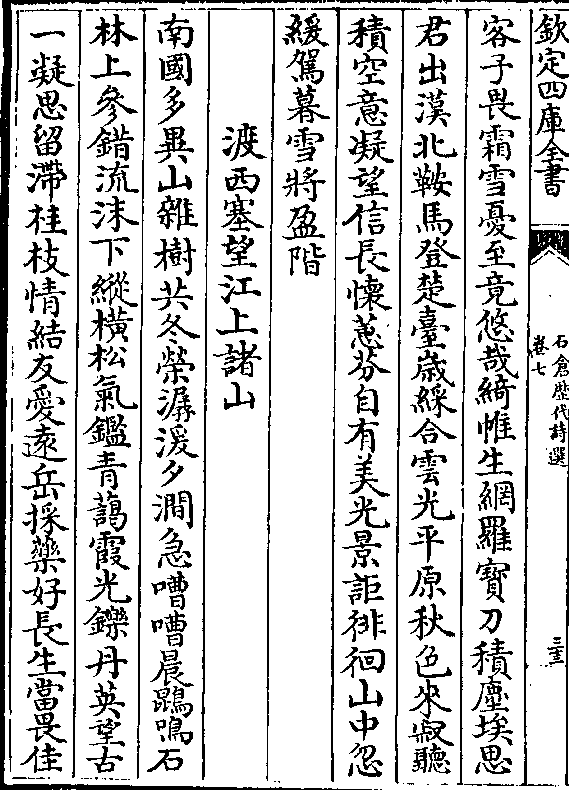 欽定四庫全書
石倉歷代詩選
卷七
三三
客子畏霜雪憂至竟悠哉綺帷生網羅寳刀積塵埃思
君出漠北鞍馬登楚臺歲綵合雲光平原秋色來寂聽
積空意凝望信長懷蕙芬自有美光景詎徘徊山中忽
緩駕暮雪將盈階
渡西塞望江上諸山
南國多異山雜樹共冬榮潺湲夕澗急嘈嘈晨鵾鳴石
林上參錯流沫下縱橫松氣鑑青藹霞光鑠丹英望古
一凝思留滯桂枝情結友愛遠岳採藥好長生當畏佳